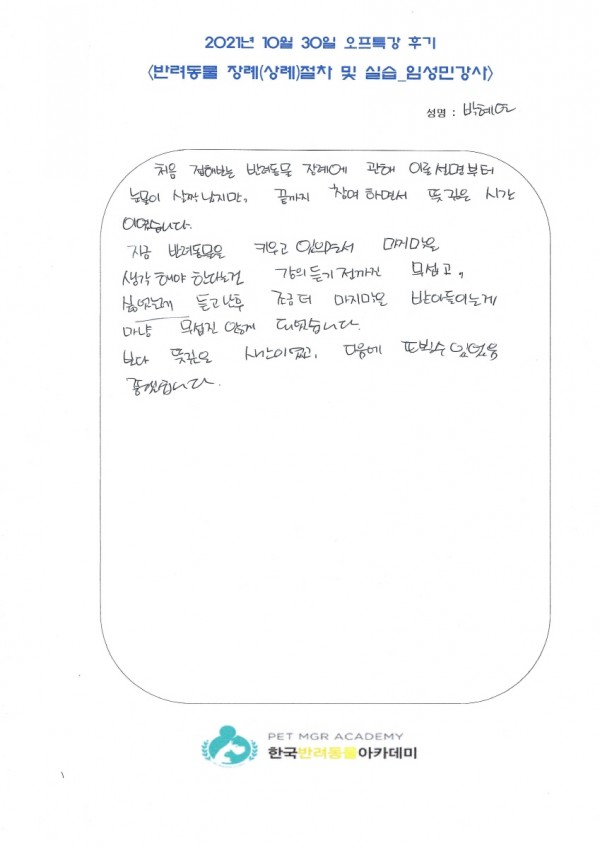 2021년 10월 30일 오프특강 후기
<반려동물 장례(상례)절차 및 실습_임성민강사>
성명 : 박혜연
처음 접해보는 반려동물 장례에 관해 이론 설명부터
눈물이 살짝 났지만, 끝까지 참여 하면서 뜻 깊은 시간
이였습니다.
지금 반려동물을 키우고 있으면서 마지막을
생각 해야 한다는건 강의 듣기 전까진 무섭고,
싫었는데 듣고 난후 조금 더 마지막을 받아들이는게
마냥 무섭진 않게 되었습니다.
보다 뜻깊은 시간이였고, 다음에 또 뵐수 있었음
좋겠습니다.
PET MGR ACADEMY
한국반려동물아카데미